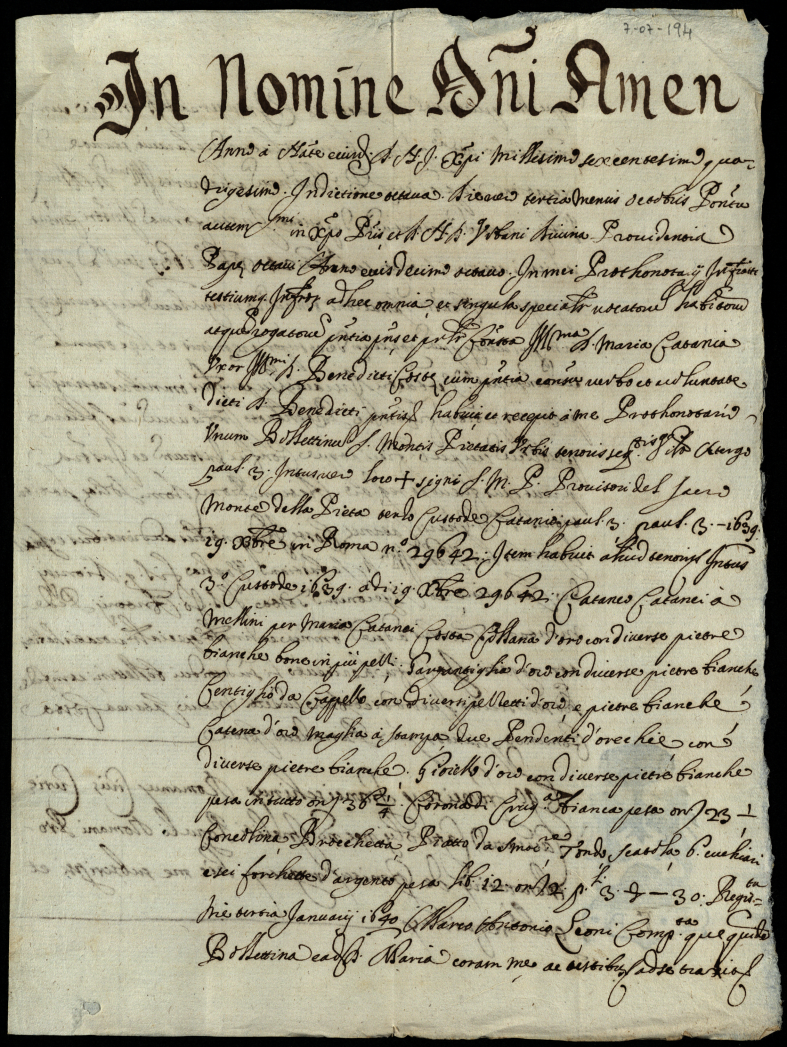 7-07-194
In Nomine Dñi Amen
Anno à Natte eiusd. D. N. J. Xpi Millesimo sexcentesimo qua-
dragesimo. Indictione octaua. Die uero tertia mensis octobris Pontus
autem in Xpo Pris et D. N. D. Vrbani diuina Prouidentia
Papę octaui Anno eius decimo octauo. In mei Prothonotarij
testiumq. ad hec omnia et singula specialr uocatorum habitorum
atque Rogatorum pñtia pñs et Illma D. Maria Catania
Vxor Illmi D. Benedicti Costę cum pñtia consensu uerbo et uoluntate
dicti D. Benedicti pñtis habuit et recepit à me Prothonotario
Vnum Bollettinum S. Montis Pietatis Vrbis tenoris A tergo
paul. 3. Intus uero loco + signi S. M. P. Prouisori del Sacro
Monte della Pietà terzo Custode Catania paul. 3. paul. 3. - 1639.
19. Xbre in Roma n.º 29642; Item habuit aliud tenoris Intus
3.º Custode 1639. adi 19. Xbre 29642; Cataneo Catanei à
Mellini per Maria Catanei Costa Collana d'oro con diuerse pietre
bianche bone in più pezzi. Gargantiglia d'oro con diuerse pietre bianche
Centiglio da Cappello con diuersi pezzetti d'oro e pietre bianche
Catena d'oro maglia à stampa due Pendenti d'orechie con
diuerse pietre bianche. Gioiello d'oro con diuerse pietre bianche
pesa in tutto on 36 1/4. Corona di bianca pesa on 23 -
Conchina Brochetta Piatto da Tondo Scatola 6. cuchiari
e sei forchette d'argento pesa lib. 12. on 3 - 30. Regta
die tertia Januarij 1640 Marco Antonio Leoni Comp.ta que quidem
Bollettina ead. D. Maria coram me ac testibus ad se traxit